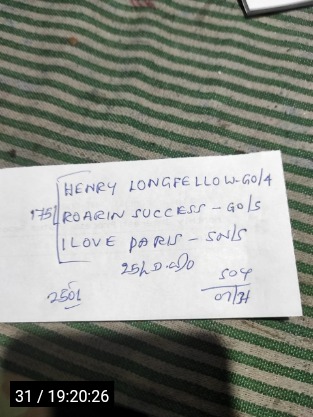 HENRY LONGFELLOW-GO/4
175/ ROARIN SUCCESS - GO/S
I LOVE PARIS - SN/S
2501
504
07/31
31 / 19:20:26